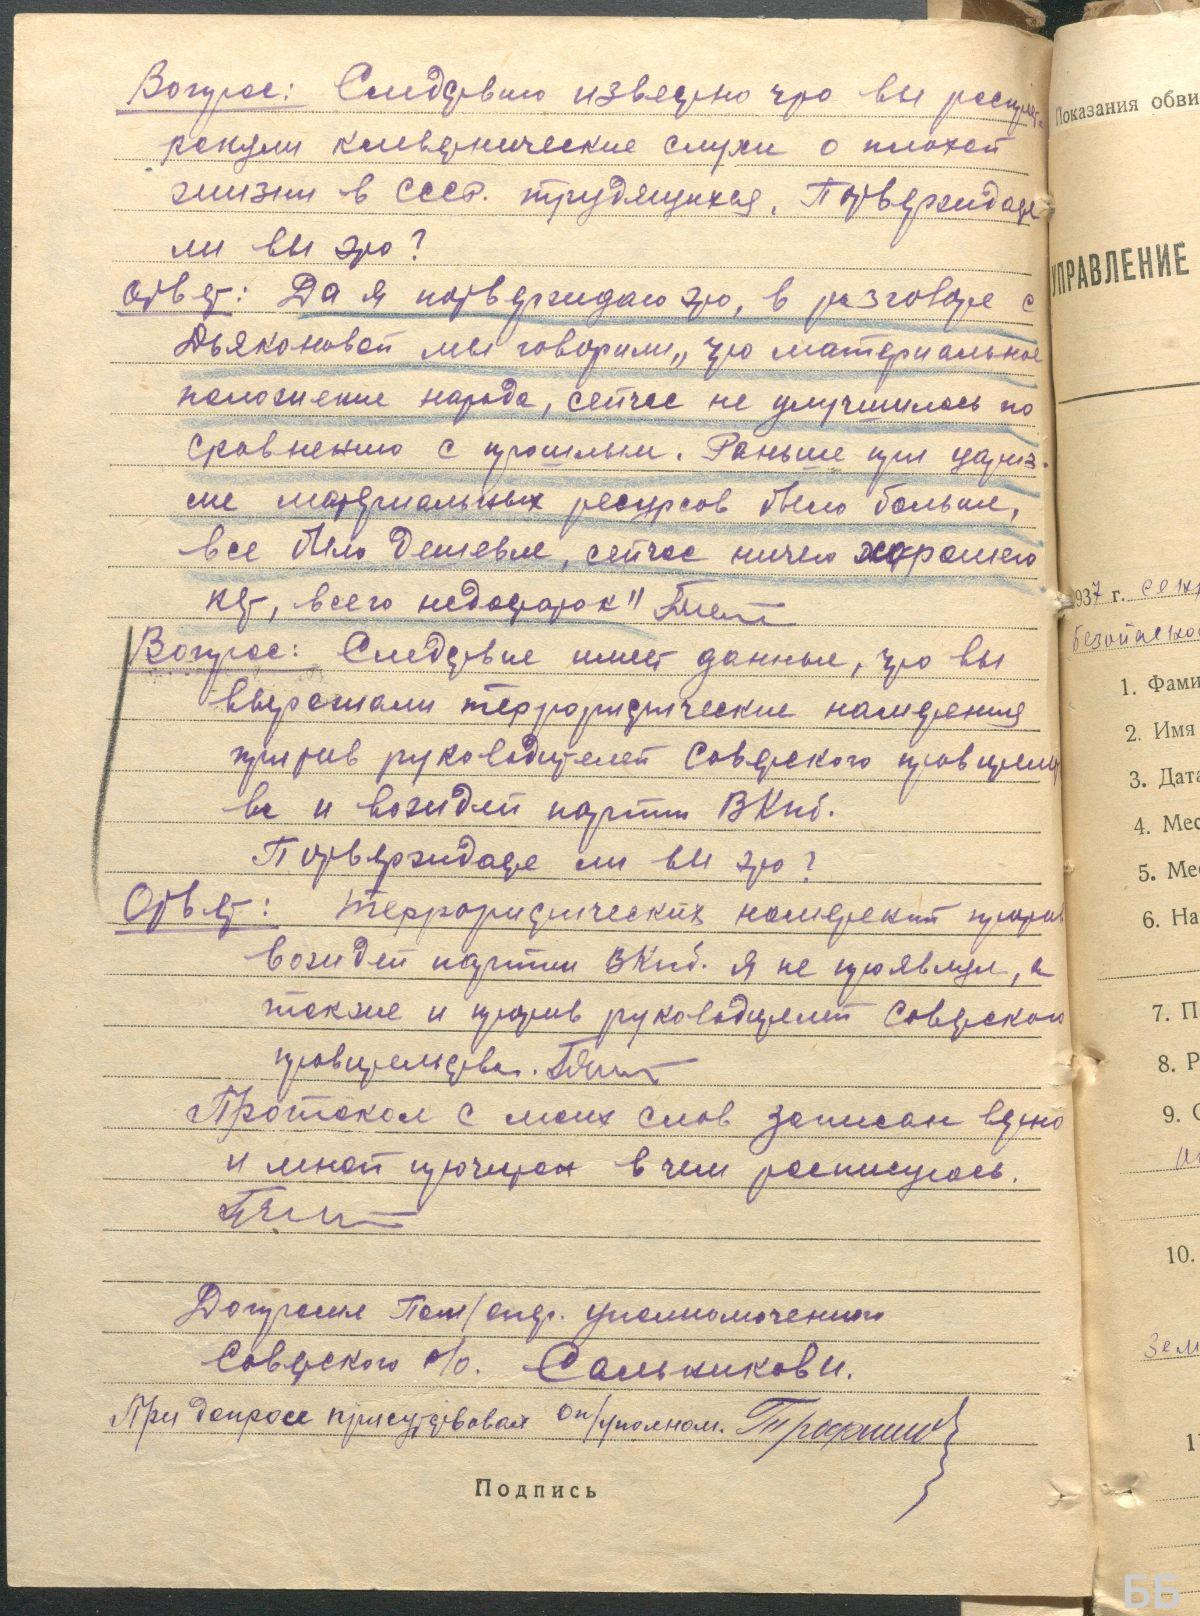 Вопрос: Следствию известно что вы распрост-
раняли клеветнические слухи о плохой
жизни в СССР. трудящихся. Подтверждаете
ли вы это?
Ответ: Да я подтверждаю это, в разговоре с
Дьяконовой мы говорили „что материальное
положение народа, сейчас не улучшилось по
сравнению с прошлым. Раньше при цариз-
ме материальных ресурсов было больше,
все было дешевле, сейчас ничего хорошего
нет, всего недостаток"
Вопрос: Следствие имеет данные, что вы
выражали террористические намерения
против руководителей Советского правительст
ва и вождей партии ВКПб.
Подтверждаете ли вы это?
Ответ: Террористических намерений против
вождей партии ВКПб. я не проявлял, а
также и против руководителей Советского
правительства.
Протокол с моих слов записан верно
и мной прочитан в чем расписуюсь.
Допросил Пом/опер. уполномоченного
Советского р/о. Сальников И.
При допросе присутствовал оп/уполном. Трофимов
Подпись
Показания обви
УПРАВЛЕНИЕ
1937 г.
1. Фами
2. Имя
3. Дата
4. Мес
5. Мес
6. На
7. П
8. Р
9. С
10.
Зем
1
ББ